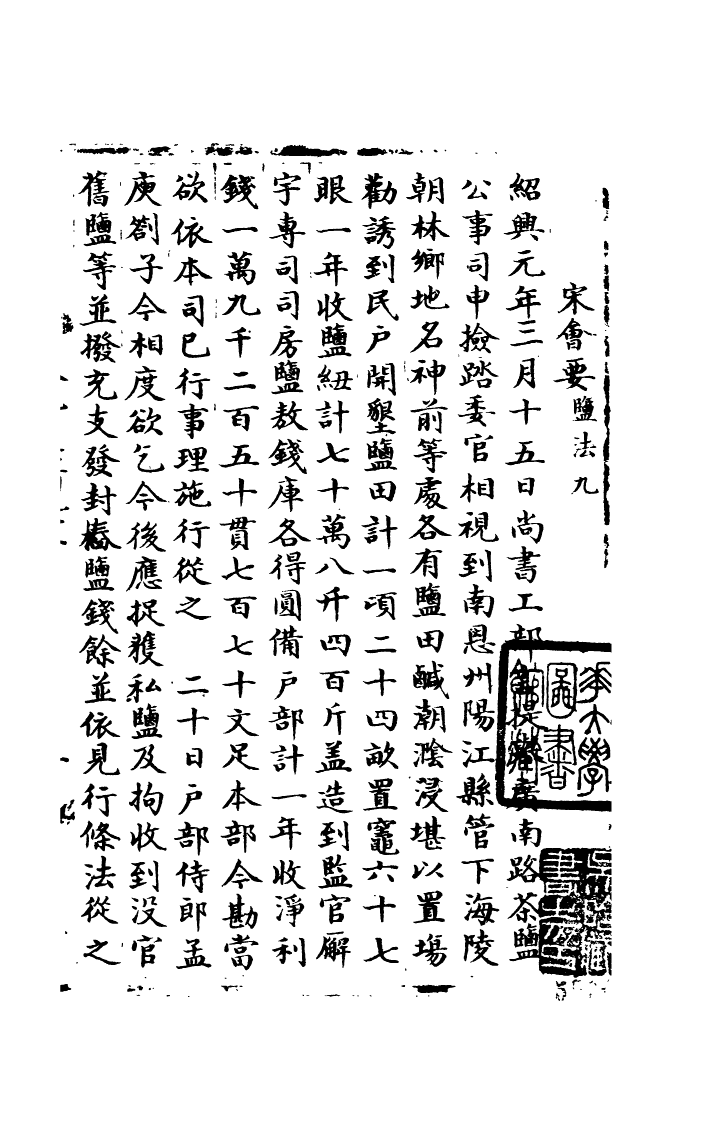 宋會要鹽法九
紹興元年三月十五日尚書工部言提舉廣南路茶鹽
公事司申撿踏委官相視到南恩州陽江縣管下海陵
朝林鄉地名神前等處各有鹽田鹹潮渰浸堪以置場
勸誘到民戶開墾鹽田計一頃二十四畝置竈六十七
眼一年收鹽紐計七十萬八千四百斤盖造到監官廨
宇專司司房鹽敖錢庫各得圓備戶部計一年收淨利
錢一萬九千二百五十貫七百七十文足本部今勘當
欲依本司已行事理施行從之 二十日戶部侍郎孟
庾劄子今相度欲乞今後應捉獲私鹽及拘收到没官
舊鹽等並撥充支發封樁鹽錢餘並依見行條法從之